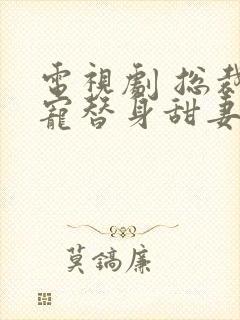 電視劇 总裁
寵替身甜妻
莫鎬廉